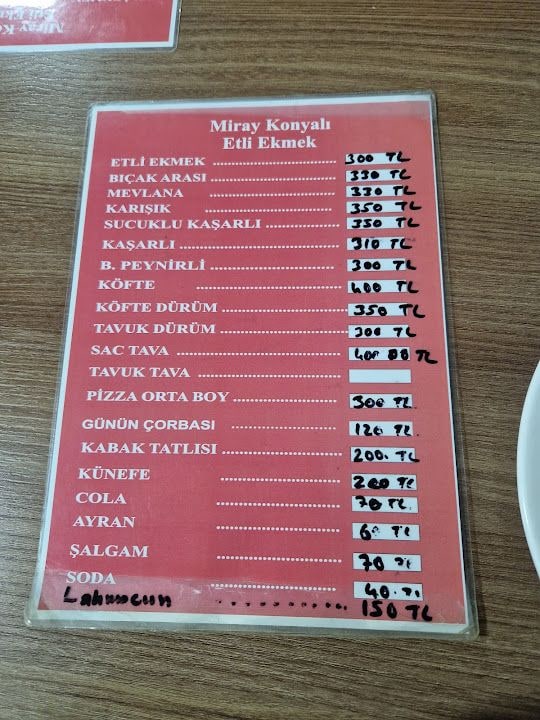 Miray Konyalı
Etli Ekmek
ETLİ EKMEK ........................ 300 TL
BIÇAK ARASI ........................ 330 TL
MEVLANA ........................ 330 TL
KARIŞIK ........................ 350 TL
SUCUKLU KAŞARLI ........................ 350 TL
KAŞARLI ........................ 310 TL
B. PEYNİRLİ ........................ 300 TL
KÖFTE ........................ 400 TL
KÖFTE DÜRÜM ........................ 350 TL
TAVUK DÜRÜM ........................ 300 TL
SAC TAVA ........................ 400 00 TL
TAVUK TAVA ........................
PİZZA ORTA BOY ........................ 300 TL
GÜNÜN ÇORBASI ........................ 120 TL
KABAK TATLISI ........................ 200. TL
KÜNEFE ........................ 200 TL
COLA ........................ 70 TL
AYRAN ........................ 60 TL
ŞALGAM ........................ 70 TL
SODA ........................ 40. TL
Lahmacun ................ 150 TL